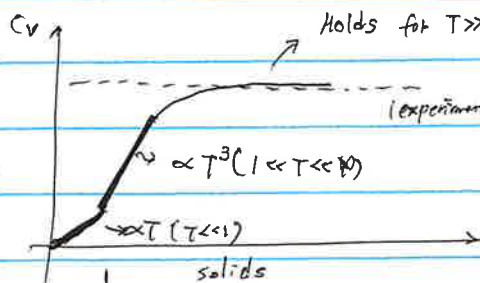 Cv
Holds for T>>
(experimen
∝ T³ (1 << T <<
→ ∝T (T<<1)
solids